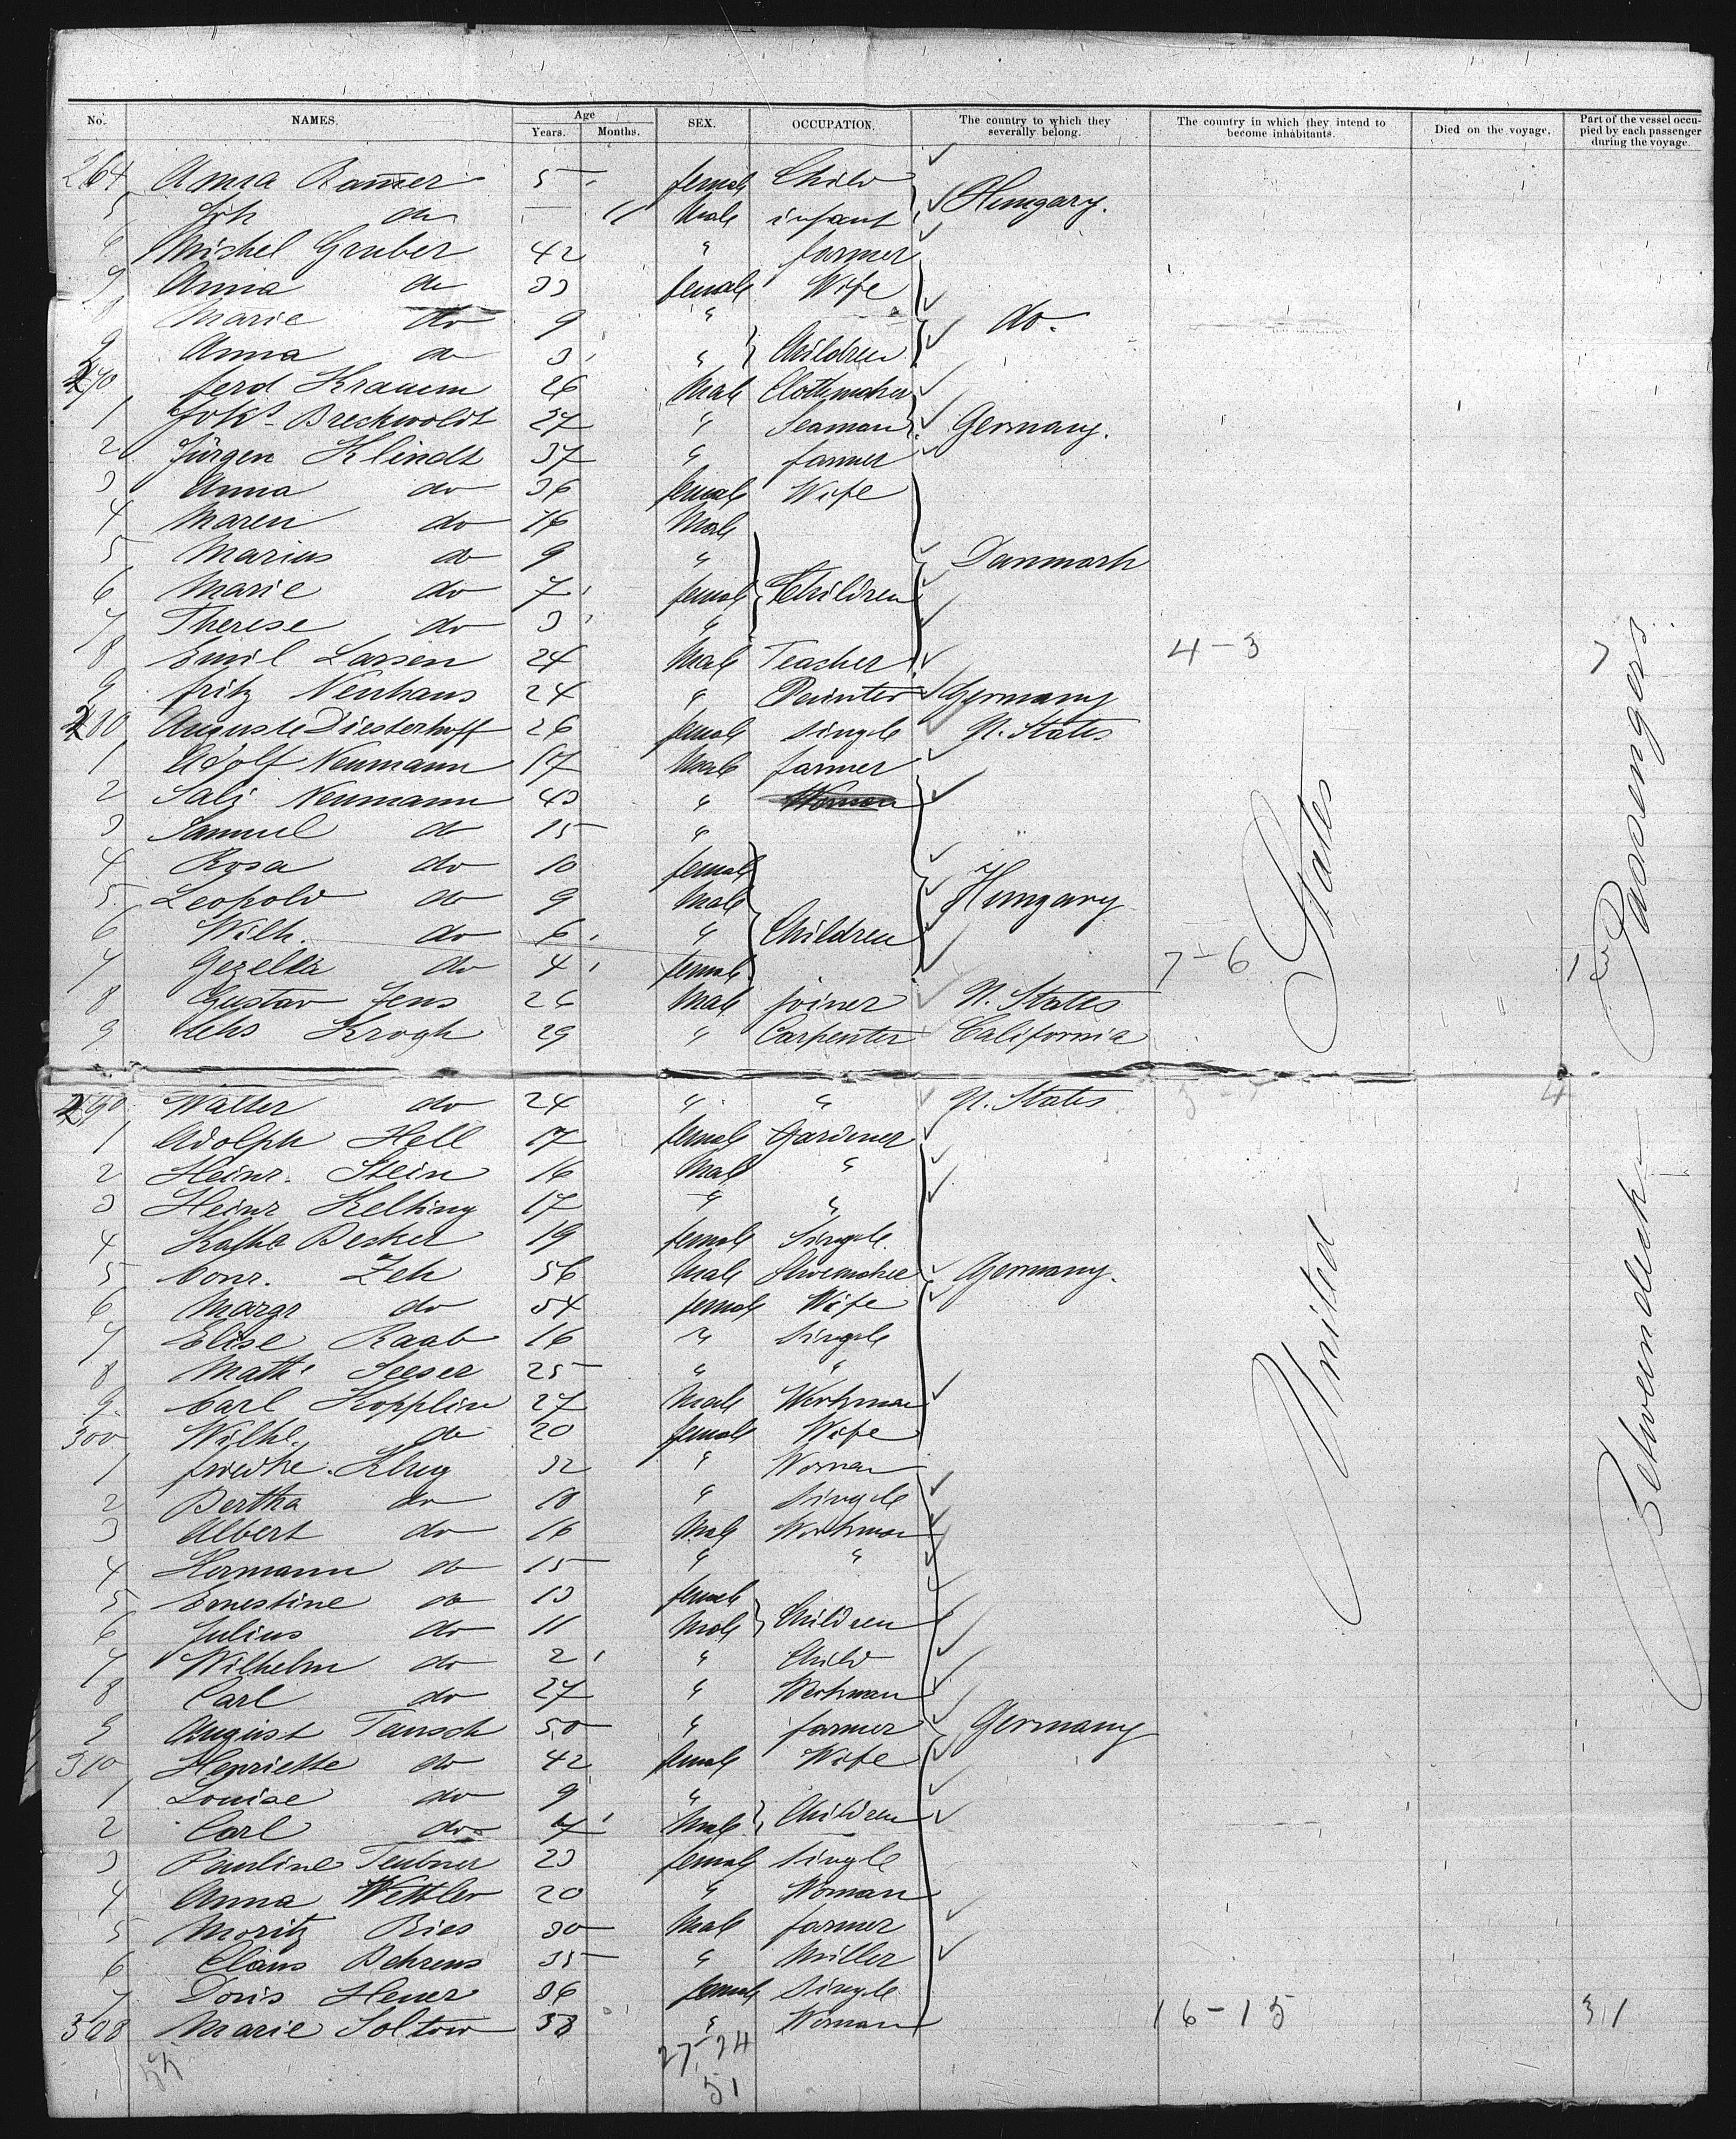 No. NAMES. Age Years. Months. SEX. OCCUPATION. The country to which they severally belong. The country in which they intend to become inhabitants. Died on the voyage. Part of the vessel occupied by each passenger during the voyage.
264 Anna 5 female Child
5 Joh do — 11 Male infant Hungary.
6 Michel Gruber 42 " farmer
7 Anna do 33 female Wife
8 Marie do 9 " do.
9 Anna do 3 " Children
270 ferd Kramm 26 Male Clothmaker
1 Johs Breckwoldt 27 " Seaman Germany.
2 Jürgen Klindt 37 " farmer
3 Anna do 36 female Wife
4 Maren do 16 Male
5 Marius do 9 " Danmark
6 Marie do 7 female Children
7 Therese do 3 "
8 Emil Larsen 24 Male Teacher 4-3 7
9 fritz Neuhaus 24 " Painter Germany
280 Auguste Diesterhoff 26 female single U. States
1 Adolf Neumann 17 Male farmer
2 Sali Neumann 43 " Woman
3 Samuel do 15 "
4 Rosa do 10 female
5 Leopold do 9 Male Hungary
6 Wilh. do 6 " Children
7 Gezella do 4 female 7-6
8 Gustav Jens 26 Male joiner U. States
9 Krogh 29 " Carpenter California
290 Walter do 24 " " U. States 4
1 Adolph Hell 17 female Gardener
2 Heinr. Stein 16 Male "
3 Heinr Kelting 17 " "
4 Kathe Becker 19 female Single.
5 Conr. Zeh 56 Male Shoemaker Germany.
6 Margr do 54 female Wife
7 Elise Raab 16 " single
8 Mathe Seeser 25 " "
9. Carl Kopplin 27 Male Workman
300 Wilhe. do 20 female Wife
1 friedke. Klug 32 " Woman
2 Bertha do 18 " single
3 Albert do 16 Male Workman
4 Hermann do 15 " "
5 Ernestine do 13 female
6 Julius do 11 Male Children
7 Wilhelm do 2 " Child
8 Carl do 27 " Workman
9 August Tausch 50 " farmer Germany
310 Henriette do 42 female Wife
1 Louise do 9 "
2 Carl do 7 Male Children
3 Pauline Teubner 23 female single
4 Anna Wettler 20 " Woman
5 Moritz Ries 30 Male farmer
6 Claus Behrens 35 " Miller
7 Doris Heuer 36 female single
308 Marie Soltow 38 " Woman 16-15 31
27-24
51
United States
Betweendeck Passengers